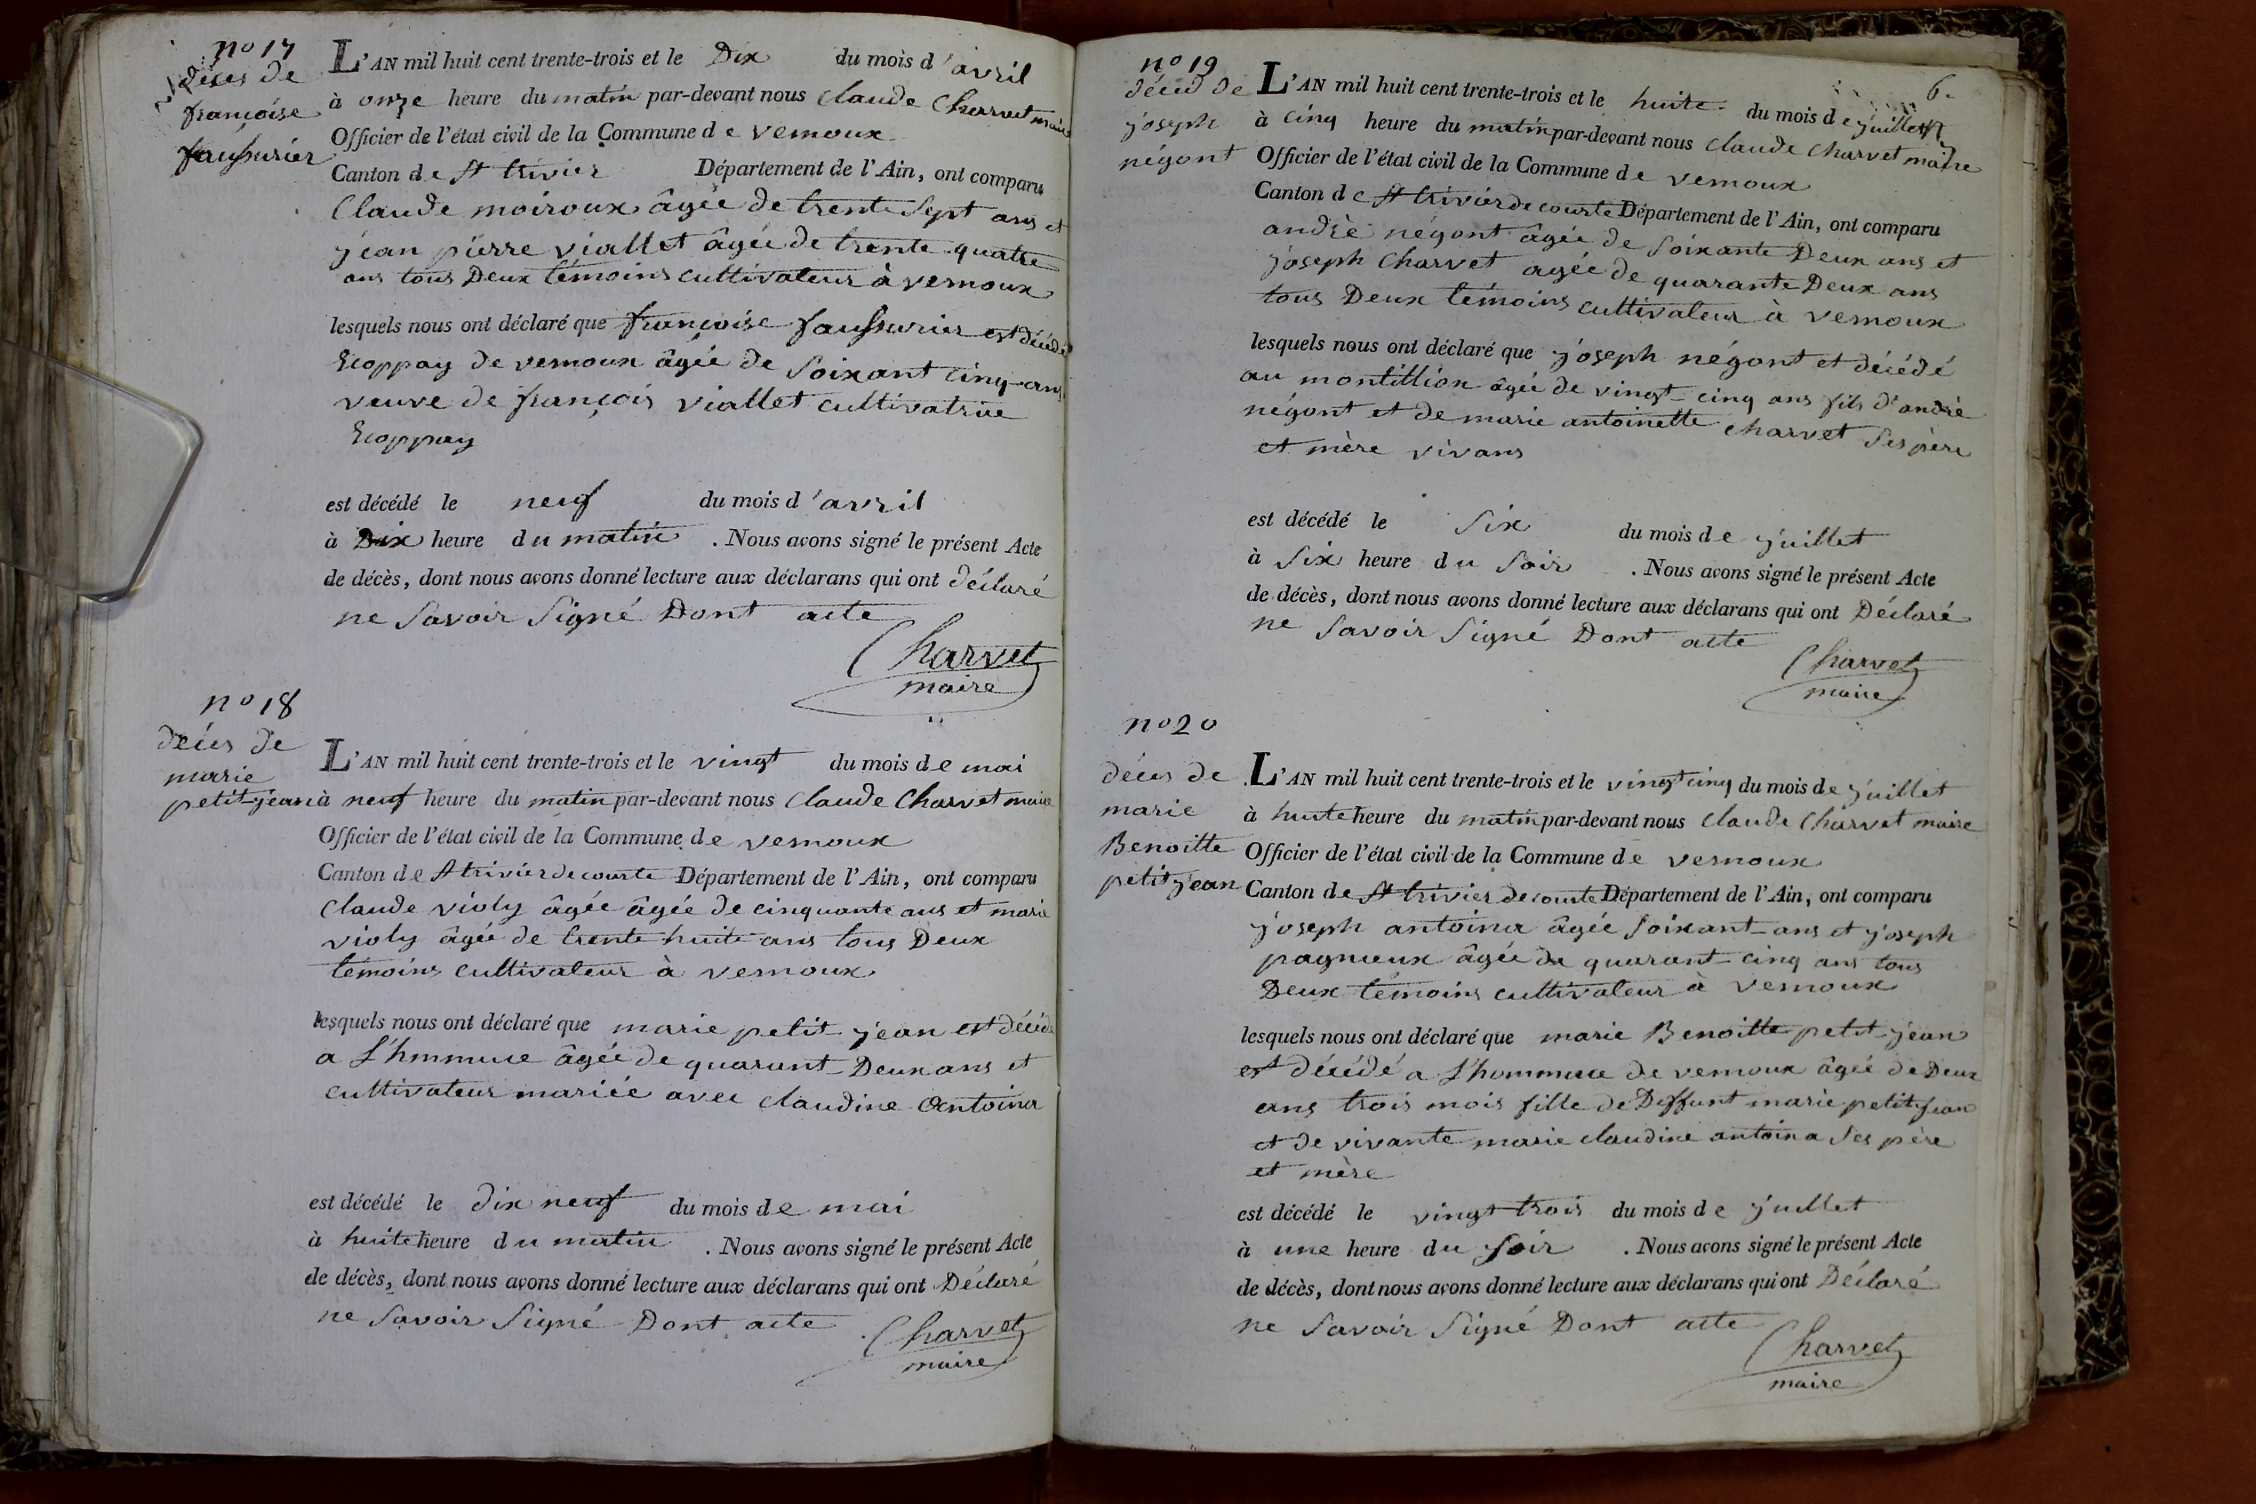 nº 17
décès de
françoise
faussurier
L'AN mil huit cent trente-trois et le Dix du mois d'avril
à onze heure du matin par-devant nous Claude Charvet maire
Officier de l'état civil de la Commune de vernoux
Canton de St trivier Département de l'Ain, ont comparu
Claude moiroux âgée de trente Sept ans et
jean pierre viallet âgée de trente quatre
ans tous Deux témoins cultivateur à vernoux
lesquels nous ont déclaré que françoise faussurier est décédé
Ecoppay de vernoux âgée de Soixant cinq ans
veuve de françois viallet cultivatrice
Ecoppay
est décédé le neuf du mois d'avril
à Dix heure du matin . Nous avons signé le présent Acte
de décès, dont nous avons donné lecture aux déclarans qui ont déclaré
ne Savoir Signé Dont acte
Charvet
maire
nº 18
décès de
marie
petit-jean
L'AN mil huit cent trente-trois et le vingt du mois de mai
à neuf heure du matin par-devant nous Claude Charvet maire
Officier de l'état civil de la Commune de vernoux
Canton de St trivier de courte Département de l'Ain, ont comparu
Claude violy âgée âgée de cinquante ans et marie
violy âgée de trente huite ans tous Deux
témoins cultivateur à vernoux
lesquels nous ont déclaré que marie petit-jean est décédé
a âgée de quarant-Deux ans et
cultivateur mariée avec claudine Antoina
est décédé le dix neuf du mois de mai
à huite heure du matin . Nous avons signé le présent Acte
de décès, dont nous avons donné lecture aux déclarans qui ont Déclaré
ne Savoir Signé Dont acte
Charvet
maire
6.
nº 19
décéd de
joseph
négont
L'AN mil huit cent trente-trois et le huite du mois de juillet
à cinq heure du matin par-devant nous Claude Charvet maire
Officier de l'état civil de la Commune de vernoux
Canton de St trivier de courte Département de l'Ain, ont comparu
andrè négont âgée de Soixante Deux ans et
joseph Charvet agée de quarante Deux ans
tous Deux témoins cultivateur à vernoux
lesquels nous ont déclaré que joseph négont et décédé
au montillion âgée de vingt-cinq ans fils d'andrè
négont et de marie antoinette charvet Ses père
et mère vivans
est décédé le Six du mois de juillet
à Six heure du Soir . Nous avons signé le présent Acte
de décès, dont nous avons donné lecture aux déclarans qui ont Déclaré
ne Savoir Signé Dont acte
Charvet
maire
nº 20
décès de
marie
Benoitte
petit jean
L'AN mil huit cent trente-trois et le vingt cinq du mois de juillet
à huite heure du matin par-devant nous Claude Charvet maire
Officier de l'état civil de la Commune de vernoux
Canton de St trivier de courte Département de l'Ain, ont comparu
joseph antoina âgée Soixant-ans et joseph
pagneux âgée de quarant-cinq ans tous
Deux témoins cultivateur à vernoux
lesquels nous ont déclaré que marie Benoitte petit-jean
est décédé a de vernoux âgée de Deux
ans trois mois fille de Deffunt marie petit jean
et de vivante marie claudine antoina Ses père
et mère
est décédé le vingt trois du mois de juillet
à une heure du Soir . Nous avons signé le présent Acte
de décès, dont nous avons donné lecture aux déclarans qui ont Déclaré
ne Savoir Signé Dont acte
Charvet
maire